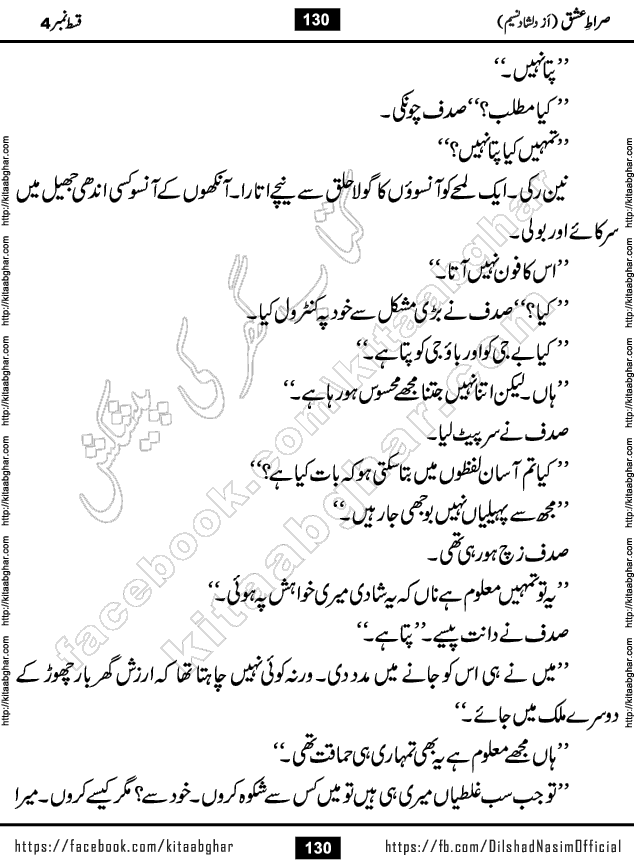 صراطِ عشق (از دلشاد نسیم)
130
قسط نمبر 4
’’پتا نہیں۔‘‘
’’کیا مطلب؟‘‘ صدف چونکی۔
’’تمہیں کیا پتا نہیں؟‘‘
نین رکی۔ ایک لمحے کو آنسوؤں کا گولا حلق سے نیچے اتارا۔ آنکھوں کے آنسو کسی اندھی جھیل میں
سرکائے اور بولی۔
’’اس کا فون نہیں آتا۔‘‘
’’کیا؟‘‘ صدف نے بڑی مشکل سے خود پہ کنٹرول کیا۔
’’کیا بے جی کو اور باؤ جی کو پتا ہے۔‘‘
’’ہاں۔ لیکن اتنا نہیں جتنا مجھے محسوس ہو رہا ہے۔‘‘
صدف نے سر پیٹ لیا۔
’’کیا تم آسان لفظوں میں بتا سکتی ہو کہ بات کیا ہے؟‘‘
’’مجھ سے پہیلیاں نہیں بوجھی جا رہیں۔‘‘
صدف زچ ہو رہی تھی۔
’’یہ تو تمہیں معلوم ہے ناں کہ یہ شادی میری خواہش پہ ہوئی۔‘‘
صدف نے دانت پیسے۔ ’’پتا ہے۔‘‘
’’میں نے ہی اس کو جانے میں مدد دی۔ ورنہ کوئی نہیں چاہتا تھا کہ ارزش گھر بار چھوڑ کے
دوسرے ملک میں جائے۔‘‘
’’ہاں مجھے معلوم ہے یہ بھی تمہاری ہی حماقت تھی۔‘‘
’’تو جب سب غلطیاں میری ہی ہیں تو میں کس سے شکوہ کروں۔ خود سے؟ مگر کیسے کروں۔ میرا
کتاب گھر کی پیشکش
facebook.com/kitaabghar
kitaabghar.com
http://kitaabghar.com http://kitaabghar.com http://kitaabghar.com http://kitaabghar.com http://kitaabghar.com http://kitaabghar.com
http://kitaabghar.com http://kitaabghar.com http://kitaabghar.com http://kitaabghar.com http://kitaabghar.com http://kitaabghar.com
https://facebook.com/kitaabghar
130
https://fb.com/DilshadNasimOfficial